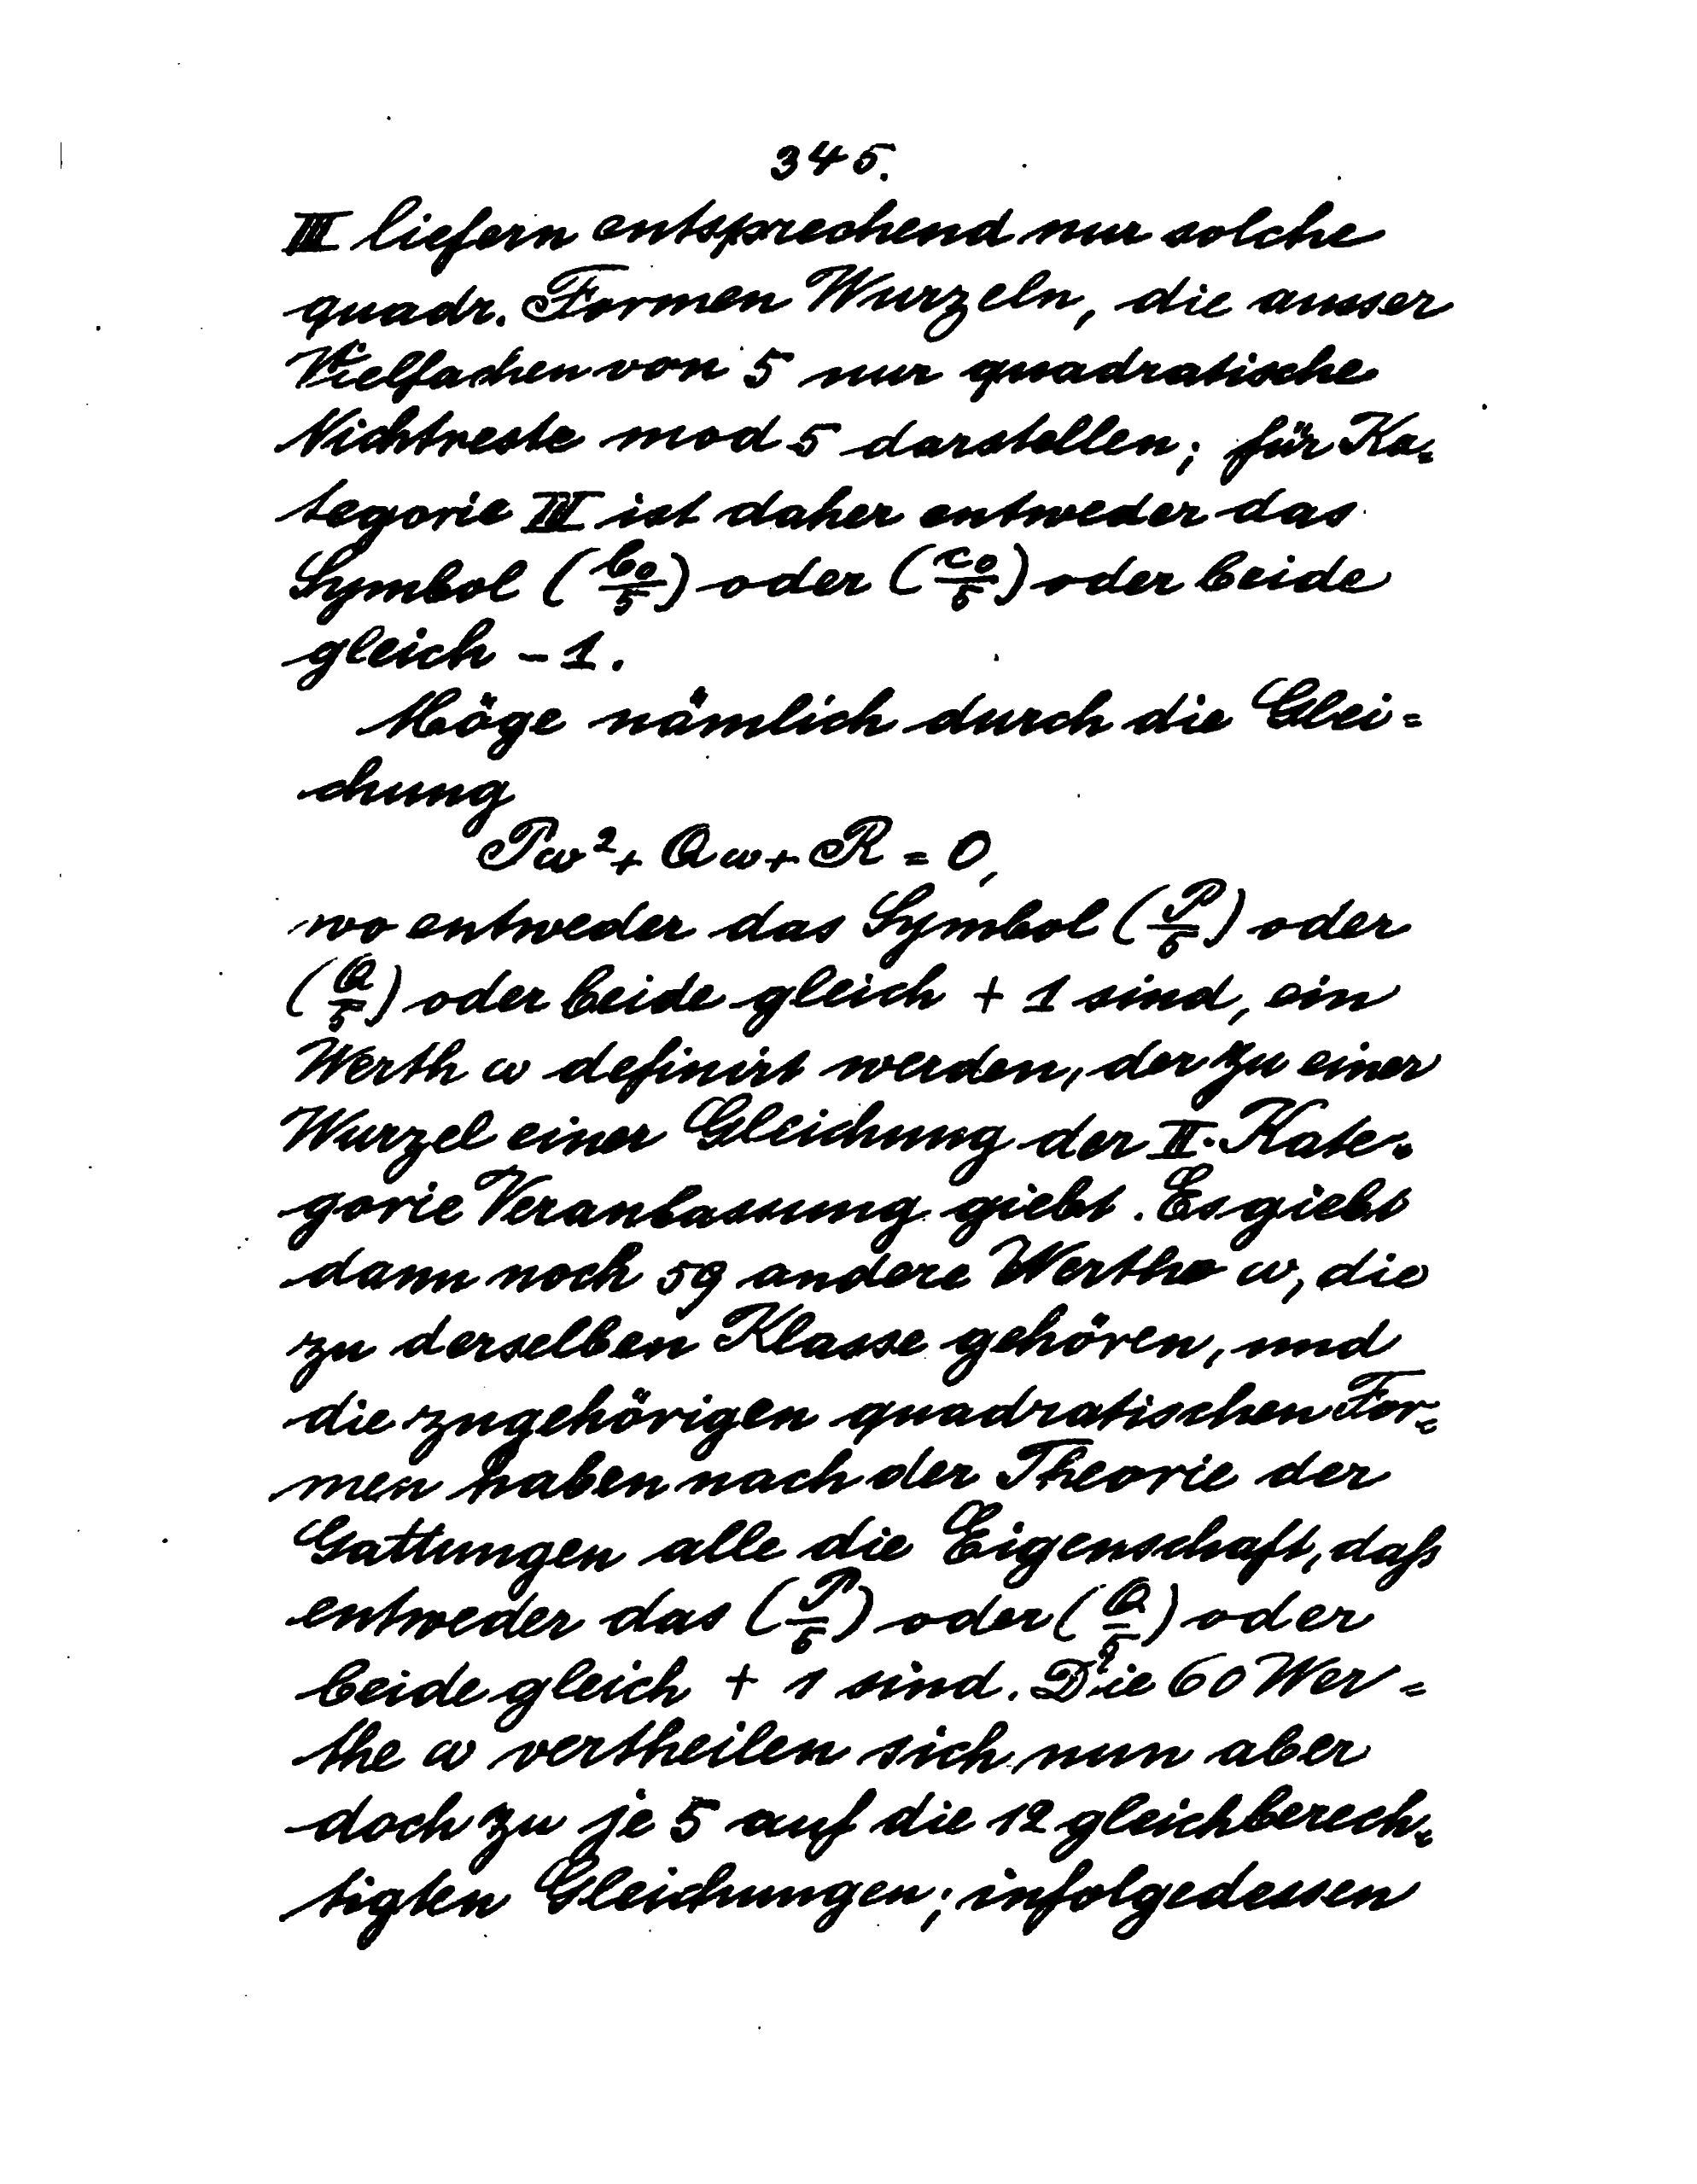 345.
III liefern entsprechend nur solche
quadr. Formen Wurzeln, die ausser
Vielfachen von 5 nur quadratische
Nichtreste mod 5 darstellen; für Ka=
tegorie III ist daher entweder das
Symbol (b₀/5) oder (c₀/5) oder beide
gleich -1.
Möge nämlich durch die Glei=
chung
Pω² + Qω + R = 0,
wo entweder das Symbol (P/5) oder
(Q/5) oder beide gleich + 1 sind, ein
Werth ω definirt werden, der zu einer
Wurzel einer Gleichung der II. Kate=
gorie Veranlassung giebt. Es giebt
dann noch 59 andere Werthe ω, die
zu derselben Klasse gehören, und
die zugehörigen quadratischen For=
men haben nach der Theorie der
Gattungen alle die Eigenschaft, daß
entweder das (P/5) oder (Q/5) oder
beide gleich + 1 sind. Die 60 Wer=
the ω vertheilen sich nun aber
doch zu je 5 auf die 12 gleichberech=
tigten Gleichungen; infolgedessen